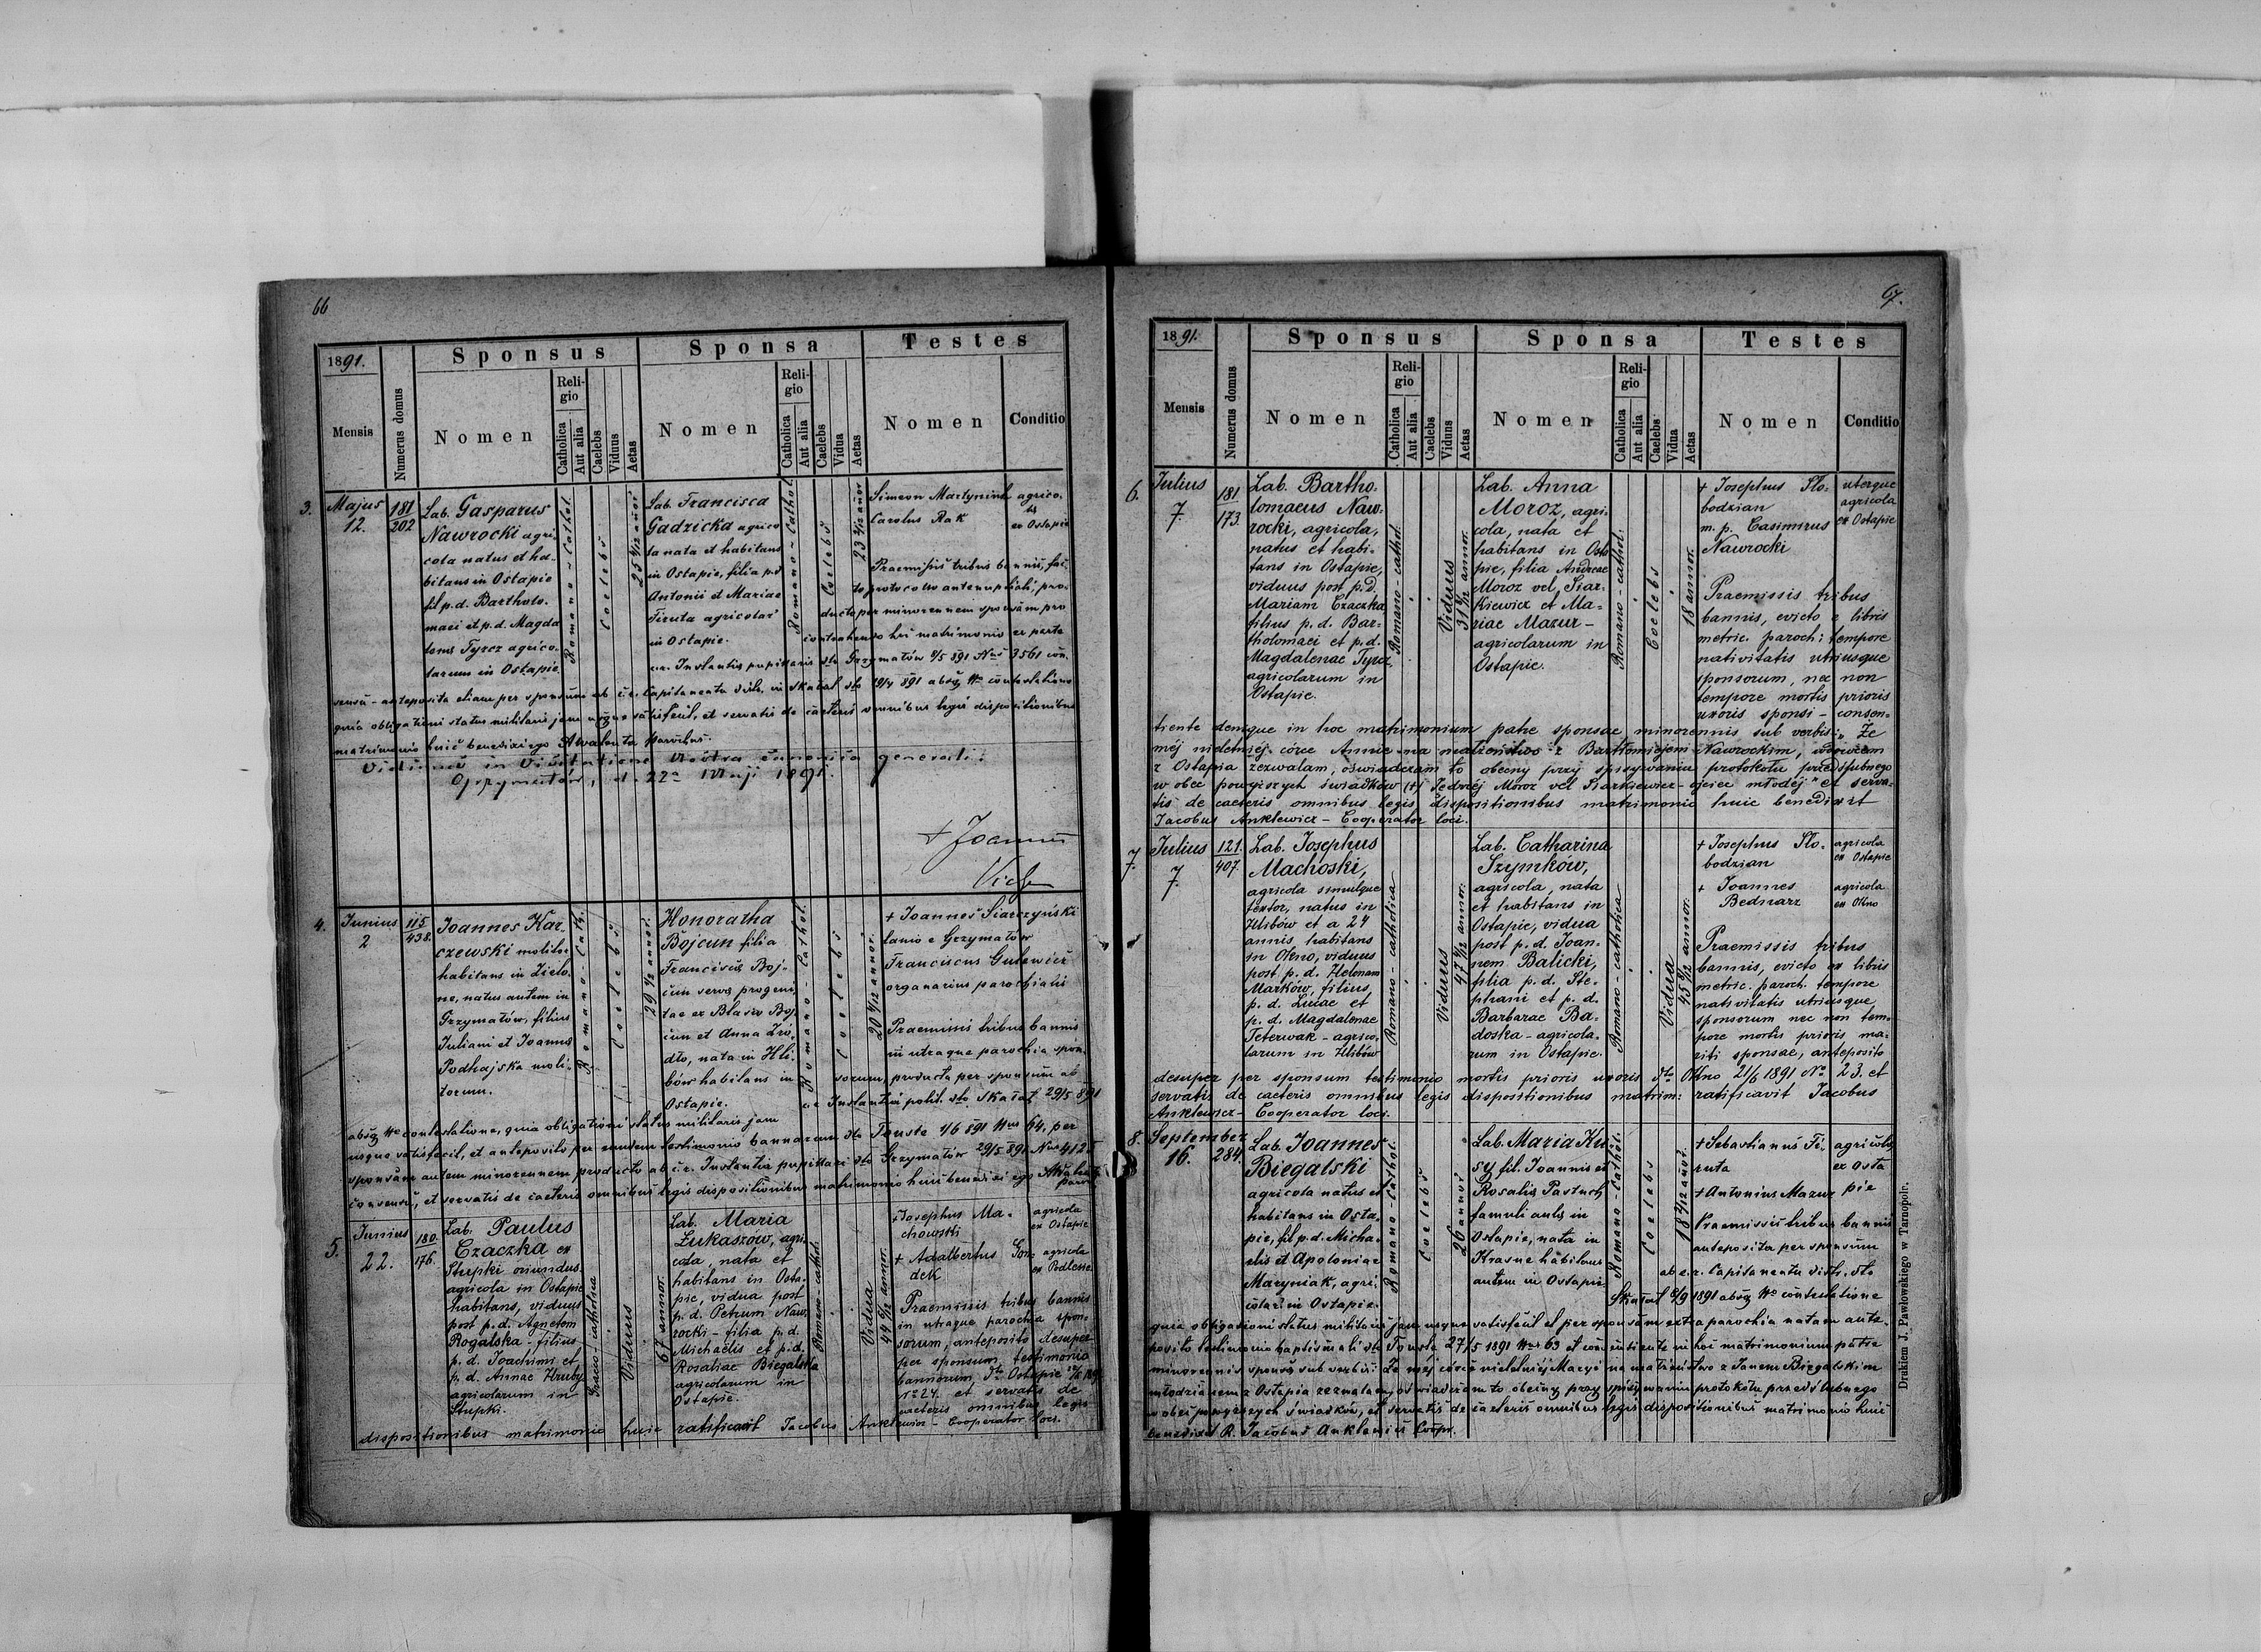 66
1891.
Mensis
Numerus domus
Sponsus
Nomen
Religio
Catholica
Aut alia
Caelebs
Viduus
Aetas
Sponsa
Nomen
Religio
Catholica
Aut alia
Caelebs
Vidua
Aetas
Testes
Nomen
Conditio
3.
Majus
12.
181
202
Lab. Gasparus
Nawrocki agri-
cola natus et ha-
bitans in Ostapie
fil p. d. Bartholo-
maei et p. d. Magda
lenae Tyrcz agrico-
larum in Ostapie
Romano-Cathol.
Coelebs
Lab. Francisca
Gadzicka agrico
la nata et habitans
in Ostapie, filia p. d
Antonii et Mariae
Tiruta agricolar
in Ostapie.
Romano-Cathol.
Coelebs
Simeon Martyniuk
Carolus Rak
agrico-
lae
ex Ostapie
Praemissis tribus bannis, fac-
to protocollo antenuptiali, pro-
ducto per minorennem sponsam pro
contrahendo hoc matrimonio ex parte
c.r. Instantiae pupillaris dto Grzymałów 8/5 891 Nus 3561 con-
sensu - anteposita etiam per sponsum ab c.r. Capitaneatu distr. in Skałat dto
quia obligationi status militaris jam usque satisfecit, et servatis de caeteris omnibus legis dispositionibus
matrimonio huic benedixi ego
Vidimus in Visitatione Nostra canonica generali.
Grzymałów, d. 22a Maji 1891.
+ Joannes
4.
Junius
2
115
438.
Joannes Kar-
czewski molitor
habitans in Zielo-
ne, natus autem in
Grzymałów, filius
Juliani et Joannae
Podhajska moli-
torum.
Romano-Cath.
Coelebs
Honoratha
Bojcun filia
Franciscae Boj-
cun servae progeni-
tae ex Blasio Boj
cun et Anna Zró-
dło, nata in Hli-
bów habitans in
Ostapie.
Romano-Cathol.
Coelebs
+ Joannes Siarczyński
lanio e Grzymałów
Franciscus Gutewicz
organarius parochialis
Praemissis tribus bannis
in utraque parochia spon-
sorum, producta per sponsum ab
c.r. Instantia polit. dto Skałat 29/5 891
absque Nro contestatione, quia obligationi status militaris jam
usque satisfecit, et anteposito per eundem testimonio bannorum dto Touste 1/6 891 Nus 64, per
sponsam autem minorennem producto ab c.r. Instantia pupillari dto Grzymałów 29/5 891 Nus 4125
consensu, et servatis de caeteris omnibus legis dispositionibus matrimonio huic benedixi ego
5.
Junius
22.
180.
176.
Lab. Paulus
Czaczka ex
Stupki oriundus,
agricola in Ostapie
habitans, viduus
post p. d. Agnetem
Rogalska - filius
p. d. Joachimi et
p. d. Annae Hruby
agricolarum in
Stupki.
Graeco-catholica
Viduus
67 annor.
Lab. Maria
Łukaszów, agri-
cola, nata et
habitans in Osta-
pie, vidua post
p. d. Petrum Naw-
rocki - filia p. d.
Michaelis et p. d.
Rosaliae Biegalska
agricolarum in
Ostapie.
Romano-cathol.
Vidua
+ Josephus Ma-
chowski
agricola
ex Ostapie
+ Adalbertus Gon-
dek
agricola
ex Podlesie
Praemissis tribus bannis
in utraque parochia spon-
sorum, anteposito desuper
per sponsum testimonio
bannorum, dto Ostapie
No 24. et servatis de
caeteris omnibus legis
dispositionibus matrimonio huic ratificavit Jacobus Anklewicz - Cooperator loci.
67.
1891.
Mensis
Numerus domus
Sponsus
Nomen
Religio
Catholica
Aut alia
Caelebs
Viduus
Aetas
Sponsa
Nomen
Religio
Catholica
Aut alia
Caelebs
Vidua
Aetas
Testes
Nomen
Conditio
6.
Julius
7.
181.
173.
Lab. Bartho-
lomaeus Naw-
rocki, agricola,
natus et habi-
tans in Ostapie,
viduus post p. D.
Mariam Czaczka
filius p. d. Bar-
tholomaei et p. d.
Magdalenae Tyrcz
agricolarum in
Ostapie.
Romano-cathol.
Viduus
Lab. Anna
Moroz, agri-
cola, nata et
habitans in Osta
pie, filia Andreae
Moroz vel Siar-
kiewicz et Ma-
riae Mazur -
agricolarum in
Ostapie.
Romano-cathol.
Coelebs
18 annor.
+ Josephus Sło-
bodzian
m. p. Casimirus
Nawrocki
uterque
agricola
ex Ostapie
Praemissis tribus
bannis, evicto e libris
metric. paroch: tempore
nativitatis utriusque
sponsorum, nec non
tempore mortis prioris
uxoris sponsi - consen-
tiente denique in hoc matrimonium patre sponsae minorennis sub verbis: „Że
mej nieletniej córce Annie na małżeństwo z Bartłomiejem Nawrockim, wdowcem
z Ostapia zezwalam, oświadczam to obecny przy spisywaniu protokołu przedślubnego
w obec powyższych świadków (+) Jędrzej Moroz vel Siarkiewicz - ojciec młodej" et serva-
tis de caeteris omnibus legis dispositionibus matrimonio huic benedixit
Jacobus Anklewicz - Cooperator loci.
7.
Julius
7.
121.
407.
Lab. Josephus
Machoski,
agricola simulque
textor, natus in
Hlibów et a 24
annis habitans
in Okno, viduus
post p. d. Helenam
Marków, filius,
p. d. Lucae et
p. d. Magdalenae
Teterwak - agrico-
larum in Hlibów
Romano-catholica
Viduus
Lab. Catharina
Szymków,
agricola, nata
et habitans in
Ostapie, vidua
post p. d. Joan-
nem Balicki,
filia p. d. Ste-
phani et p. d.
Barbarae Ba-
doska - agricola-
rum in Ostapie.
Romano-catholica
Vidua
+ Josephus Sło-
bodzian
agricola
ex Ostapie
+ Joannes
Bednarz
agricola
ex Okno
Praemissis tribus
bannis, evicto ex libris
metric. paroch. tempore
nativitatis utriusque
sponsorum nec non tem-
pore mortis prioris ma-
riti sponsae, anteposito
desuper per sponsum testimonio mortis prioris uxoris dto Okno 21/6 1891 No 23. et
servatis de caeteris omnibus legis dispositionibus matrim: ratificavit Jacobus
Anklewicz - Cooperator loci.
8.
September
16.
284.
Lab. Joannes
Biegalski
agricola natus et
habitans in Osta-
pie, fil p. d. Micha-
elis et Apoloniae
Maryniak, agri-
colar. in Ostapie.
Romano-Cathol.
Coelebs
26 annor
Lab. Maria Ku
sy fil. Joannis et
Rosaliae Pastuch
famuli aulae in
Ostapie, nata in
Krasne habitans
autem in Ostapie
Romano-Cathol.
Coelebs
+ Sebastianus Ti-
ruta
+ Antonius Mazur
agricolae
ex Osta
pie
Praemissis tribus bannis
anteposita per sponsum
ab c.r. Capitaneatu distr. dto
Skałat 8/9 1891 absque Nro contestatione
quia obligationi status militaris jam usque satisfecit et per sponsam extra parochia natam ante-
posito testimonio baptismali dto Touste 27/5 1891 Nus 63 et consentiente in hoc matrimonium patre
minorennis sponsae sub verbis: Że mej córce nieletniej Maryi na małżeństwo z Janem Biegalskim
młodzianem z Ostapia zezwalam, oświadczam to obecny przy spisywaniu protokołu przedślubnego
w obec powyższych świadków, et servatis de caeteris omnibus legis dispositionibus matrimonio huic
benedixit R. Jacobus Anklewicz Coopr.
Drukiem J. Pawłowskiego w Tarnopolu.